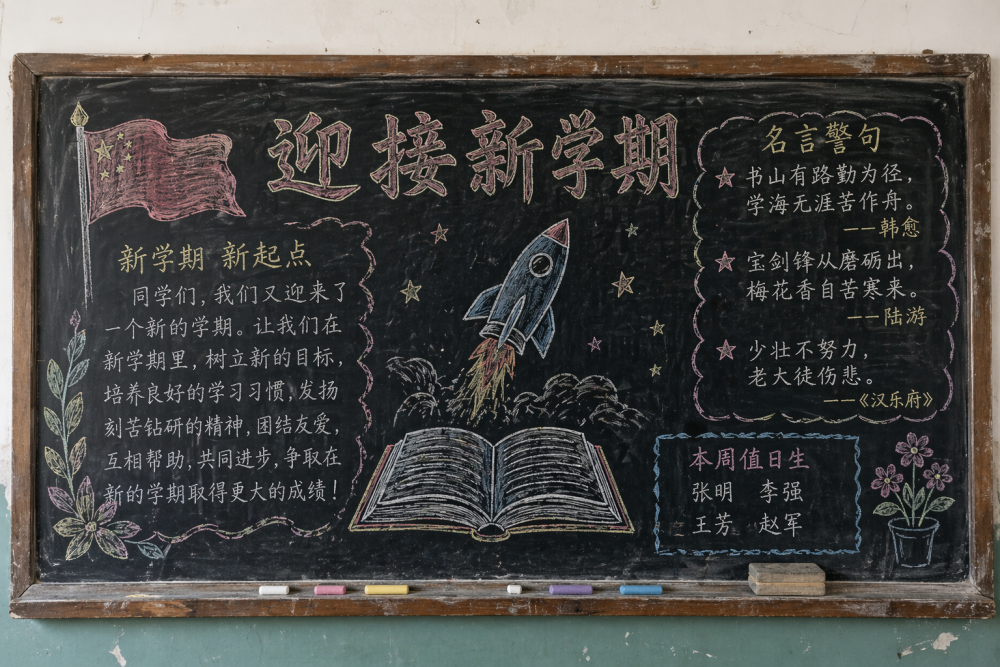 迎接新学期
新学期 新起点
同学们,我们又迎来了
一个新的学期。让我们在
新学期里,树立新的目标,
培养良好的学习习惯,发扬
刻苦钻研的精神,团结友爱,
互相帮助,共同进步,争取在
新的学期取得更大的成绩!
名言警句
书山有路勤为径,
学海无涯苦作舟。
——韩愈
宝剑锋从磨砺出,
梅花香自苦寒来。
——陆游
少壮不努力,
老大徒伤悲。
——《汉乐府》
本周值日生
张明 李强
王芳 赵军